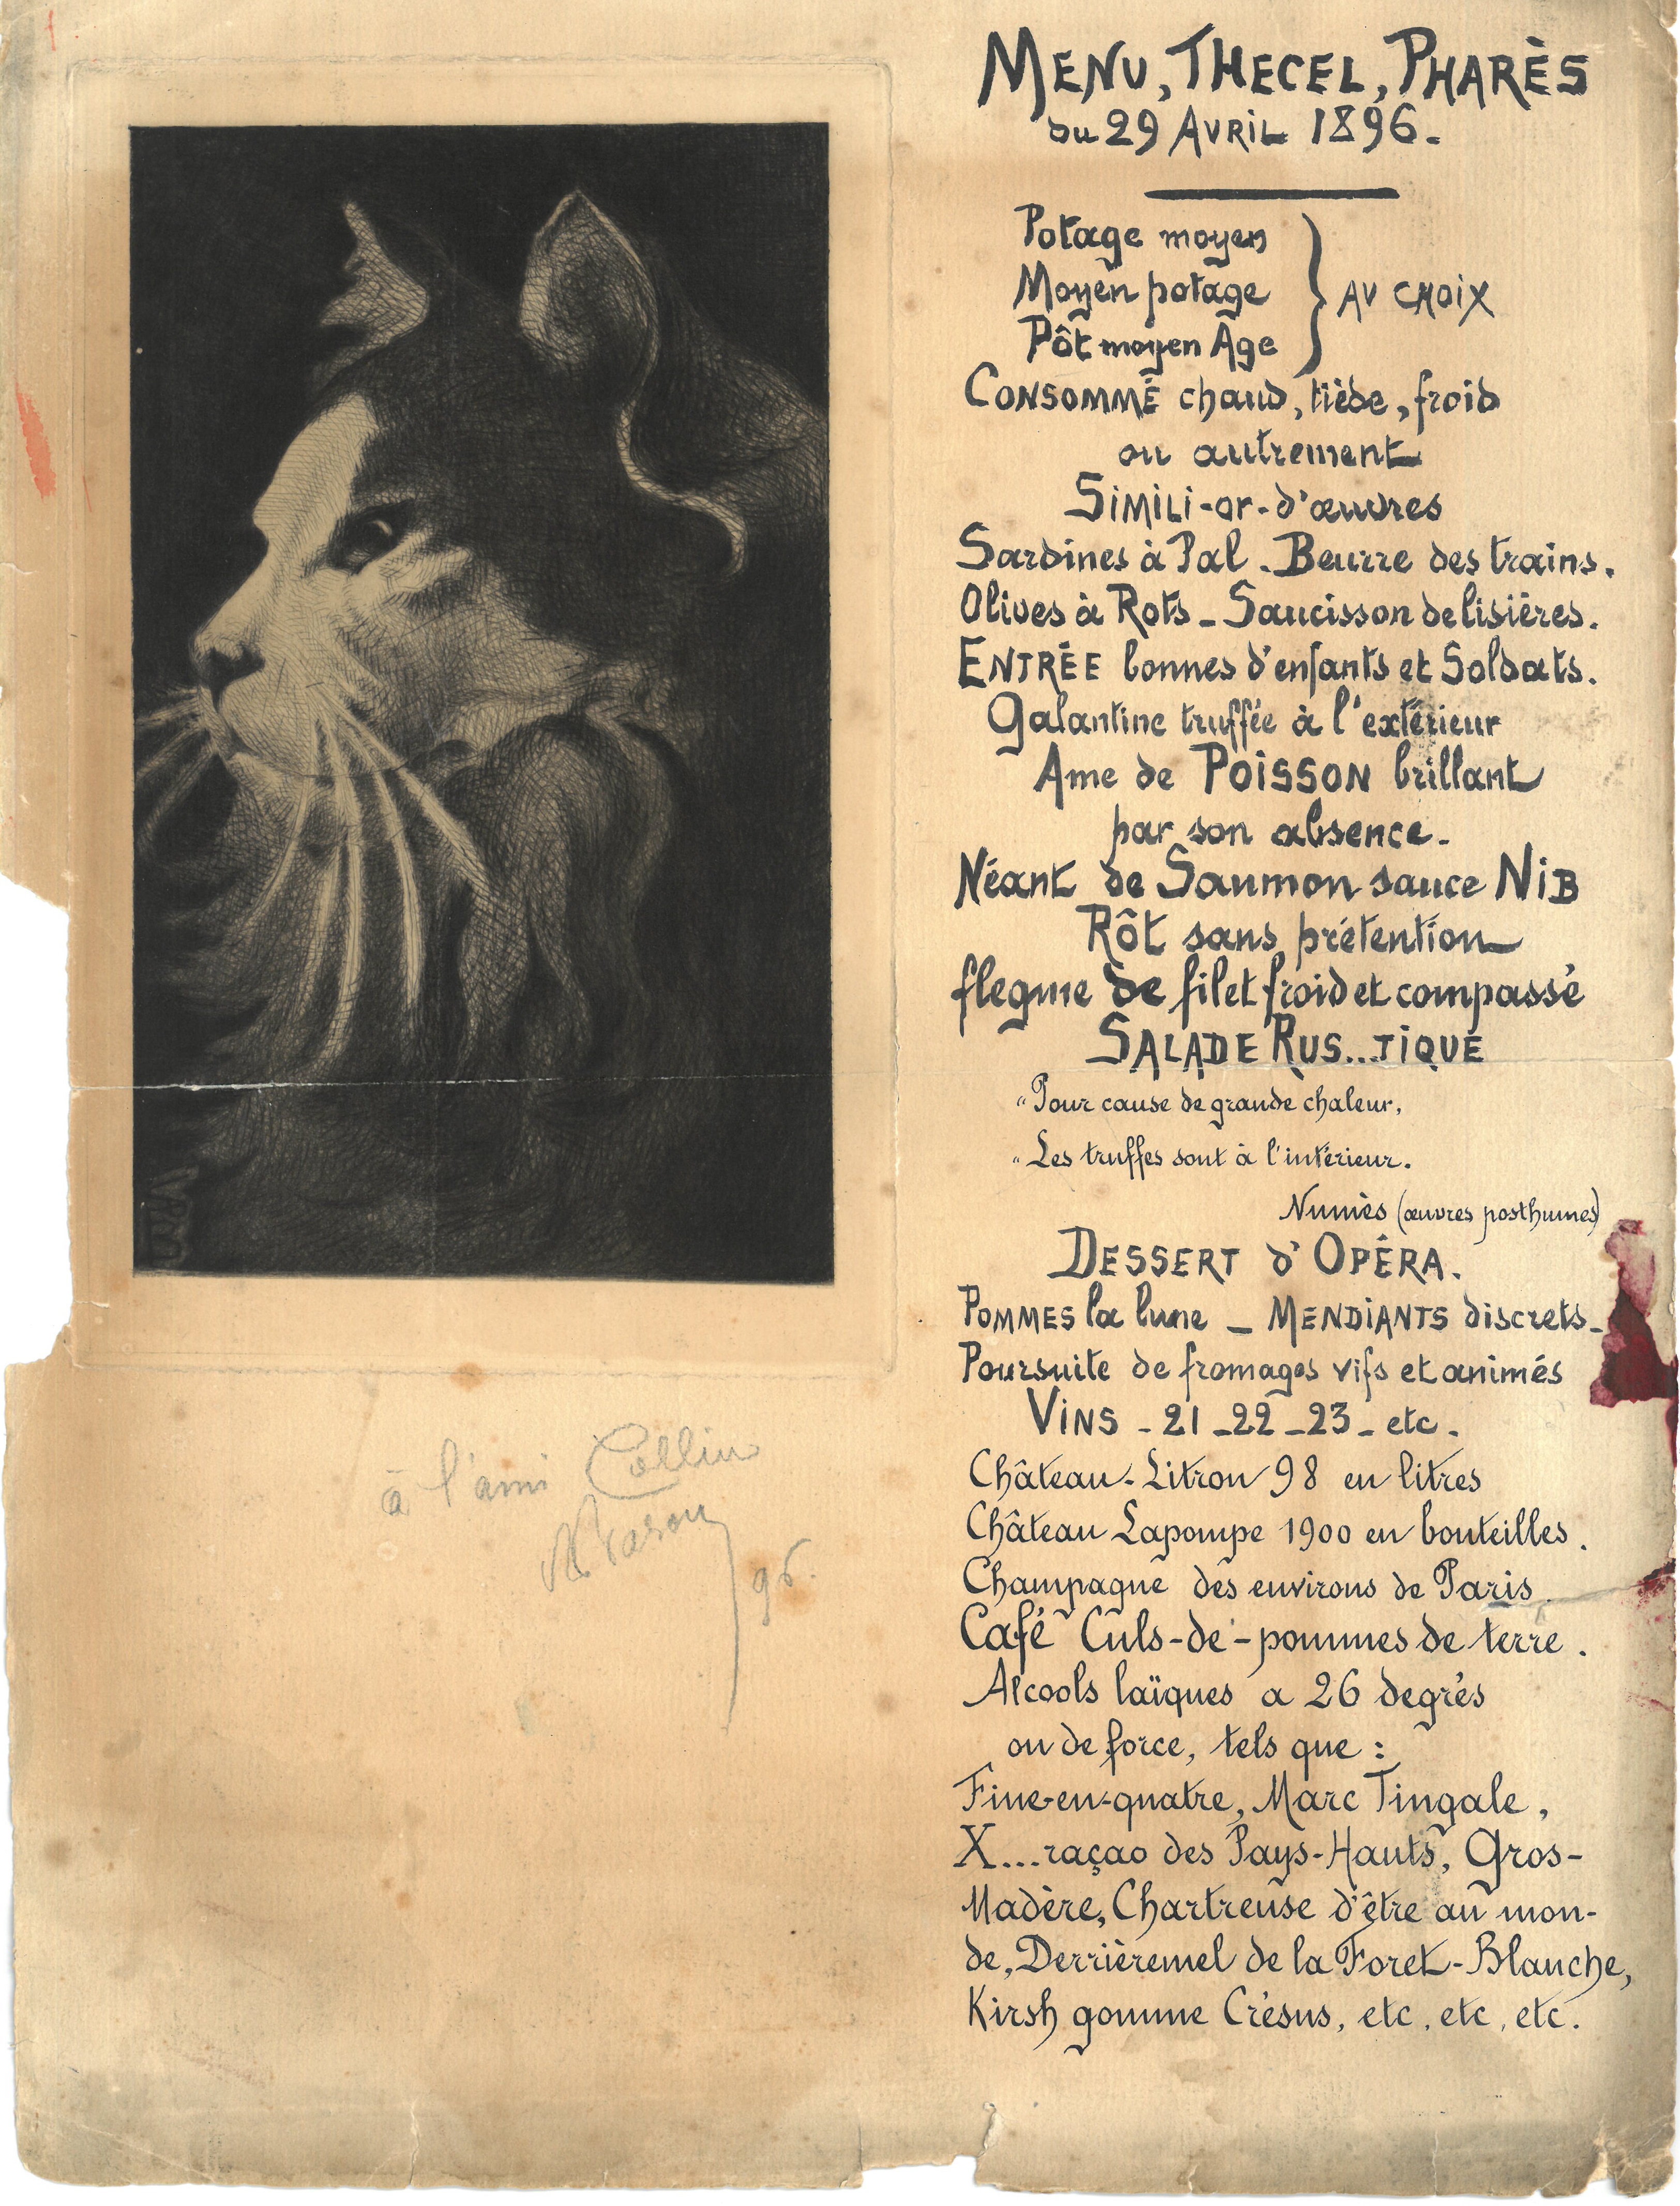 MENU, THECEL, PHARÈS
du 29 AVRIL 1896.
Potage moyen
Moyen potage
Pôt moyen Age
AU CHOIX
CONSOMMÉ chaud, tiède, froid
ou autrement
SIMILI-or-d'œuvres
Sardines à Pal. Beurre des trains.
Olives à Rots - Saucisson de lisières.
ENTRÉE bonnes d'enfants et Soldats.
Galantine truffée à l'extérieur
Ame de POISSON brillant
par son absence.
Néant de Saumon sauce NIB
Rôt sans prétention
flegme de filet froid et compassé
SALADE RUS...TIQUE
"Pour cause de grande chaleur,
"Les truffes sont à l'intérieur.
Numès (œuvres posthumes)
DESSERT d'OPÉRA.
POMMES la lune - MENDIANTS discrets -
Poursuite de fromages vifs et animés
VINS - 21 - 22 - 23 - etc.
Château-Litron 98 en litres
Château Lapompe 1900 en bouteilles.
Champagne des environs de Paris.
Café Culs-de-pommes de terre.
Alcools laïques a 26 degrés
ou de force, tels que :
Fine-en-quatre, Marc Tingale,
X...raçao des Pays-Hauts, Gros-
Madère, Chartreuse d'être au mon-
de, Derrièremel de la Foret-Blanche,
Kirsh gomme Crésus, etc, etc, etc.
à l'ami Collin
96.